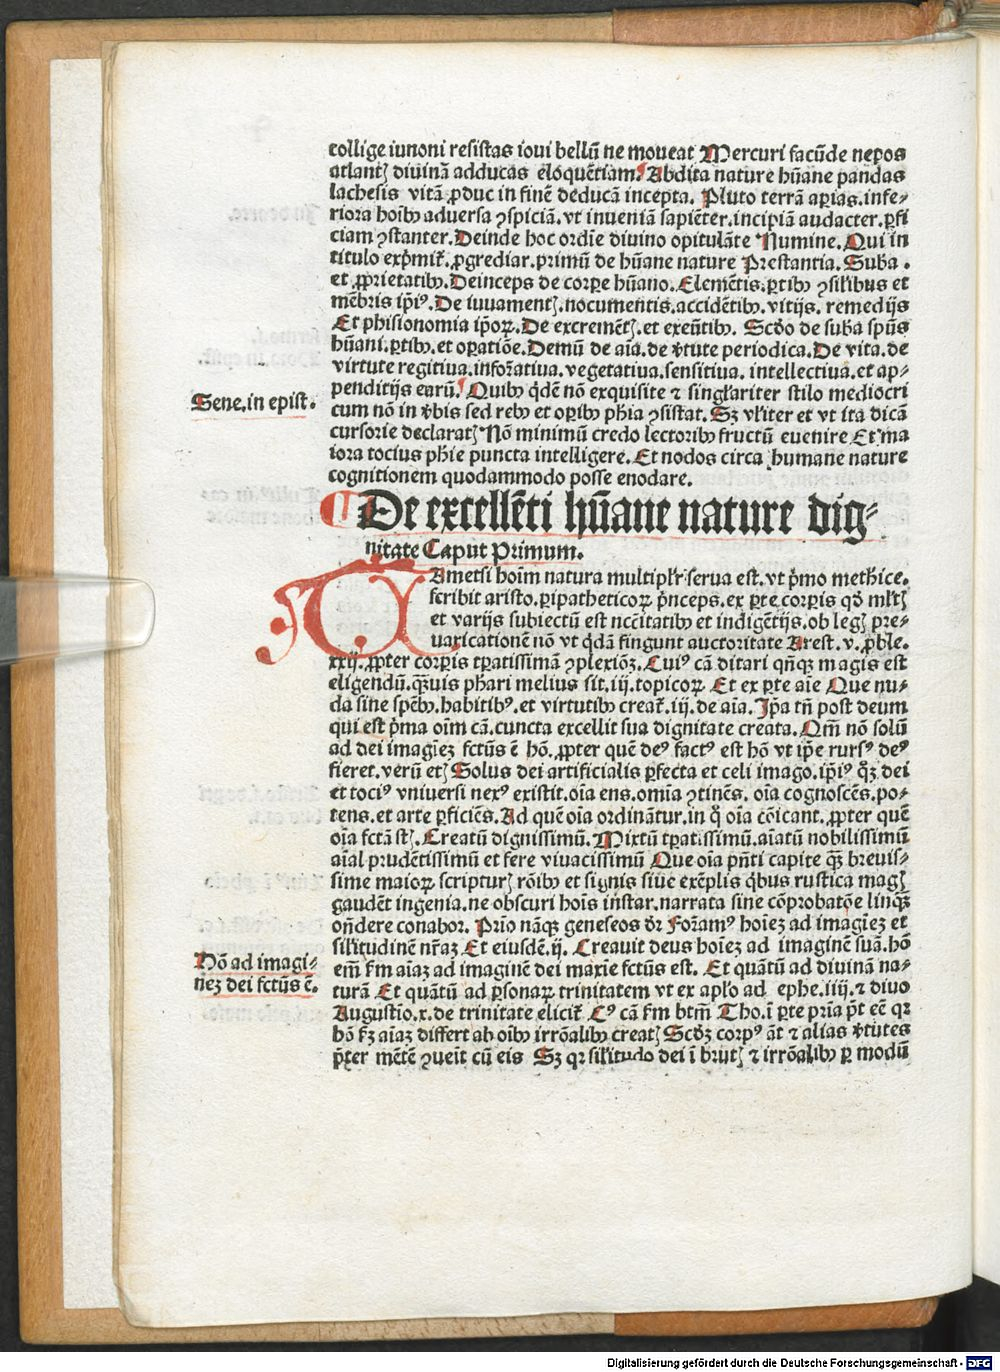 collige iunoni resistas ioui bellū ne moueat Mercuri facūde nepos
atlantꝫ diuinā adducas eloquētiam. Abdita nature hūane pandas
lachesis vitā ꝓduc in finē deducā incepta. Pluto terrā aꝑias. infe-
riora hoībꝰ aduersa ꝯspiciā. vt inueniā sapiēter. incipiā audacter. ꝑfi
ciam ꝯstanter. Deinde hoc ordīe diuino opitulāte Numine. Qui in
titulo exp̄mit̄. ꝓgrediar. primū de hūane nature Prestantia. Suba.
et ꝓprietatibꝰ. Deinceps de corꝑe hūano. Elemētis. ꝑtibꝰ ꝯsilibus et
mēbris ip̄iꝰ. De iuuamentꝫ. nocumentis. accidētibꝰ. vitijs. remedijs
Et phisionomia ip̄oꝝ. De excremētꝫ. et exeūtibꝰ. Scd̄o de suba spūs
hūani. ꝑtibꝰ. et oꝑatiōe. Demū de aīa. de v̄tute periodica. De vita. de
virtute regitiua. informatiua. vegetatiua. sensitiua. intellectiua. et ap-
penditijs earū. Quibꝰ qͥdē nō exquisite ⁊ singlariter stilo mediocri
Sene. in epist.
cum nō in v̄bis sed rebꝰ et oꝑibꝰ ph̄ia ꝯsistat. Sꝫ vl̄iter et vt ita dicā
cursorie declaratꝫ Nō minimū credo lectoribꝰ fructū euenire Et ma
iora tocius ph̄ie puncta intelligere. Et nodos circa humane nature
cognitionem quodammodo posse enodare.
De excellēti hūane nature dig-
nitate Caput Primum.
TAmetsi hoīm natura multipl̄r serua est. vt p̄mo meth̄ice.
scribit aristo. ꝑipatheticoꝝ p̄nceps. ex ꝑte corꝑis qd̄ ml̄tꝫ
et varijs subiectū est nccītatibꝰ et indigētijs. ob legꝫ pre-
uaricationē nō vt qͥdā fingunt auctoritate Arest. v. ꝓble.
xxij. ꝓpter corꝑis tꝑatissimā ꝯplexiōꝫ. Cuiꝰ cā ditari qn̄qꝫ magis est
eligendū. qͣꝫuis phari melius sit. iij. topicoꝝ. Et ex ꝑte aīe Que nu-
da sine spēbꝰ. habitibꝰ. et virtutibꝰ creat̄. iij. de aīa. Ip̄a tn̄ post deum
qui est p̄ma oīm cā. cuncta excellit sua dignitate creata. Qm̄ nō solū
ad dei imagīeꝫ fctūs ē hō. ꝓpter quē deꝰ factꝰ est hō vt ip̄e rursꝰ deꝰ
fieret. verū etꝫ Solus dei artificialis ꝑfecta et celi imago. ip̄iꝰ qͦꝫ dei
et tociꝰ vniuersi nexꝰ existit. oīa ens. omīa ꝯtinēs. oīa cognoscēs. po-
tens. et arte ꝑficiēs. Ad quē oīa ordinātur. in qͦ oīa cōicant. ꝓpter quē
oīa fctā stꝫ. Creatū dignissimū. Mixtū tꝑatissimū. aīatū nobilissimū
aīal prudētissimū et fere viuacissimū Que oīa pn̄ti capite qͣꝫ breuis-
sime maioꝝ scripturꝫ rōibꝰ et signis siue exēplis qͥbus rustica magꝫ
gaudēt ingenia. ne obscuri hoīs instar. narrata sine cōprobatōe linqͣꝫ
on̄dere conabor. Prīo nāqꝫ geneseos dr̄ Foramꝰ hoīeꝫ ad imagīeꝫ et
silitudinē nr̄aꝫ Et eiusdē. ij. Creauit deus hoīeꝫ ad imaginē suā. hō
Hō ad imagi-
neꝫ dei fctūs ē.
em̄ fm̄ aīaꝫ ad imaginē dei maxīe fctūs est. Et quātū ad diuinā na-
turā Et quātū ad ꝑsonaꝝ trinitatem vt ex aplo ad ephe. iiij. ⁊ diuo
Augustīo. x. de trinitate elicit̄. Cꝰ cā fm̄ btm̄ Tho. ī ꝑte prīa pͥt eē qꝛ
hō fꝫ aīaꝫ differt ab oībꝰ irrōalibꝰ creatꝫ Scd̄ꝫ corpꝰ āt ⁊ alias v̄tutes
p̄ter mētē ꝯueīt cū eis Sꝫ qꝛ silitudo dei ī brutꝫ ⁊ irrōalibꝰ ꝑ modū
Digitalisierung gefördert durch die Deutsche Forschungsgemeinschaft - DFG